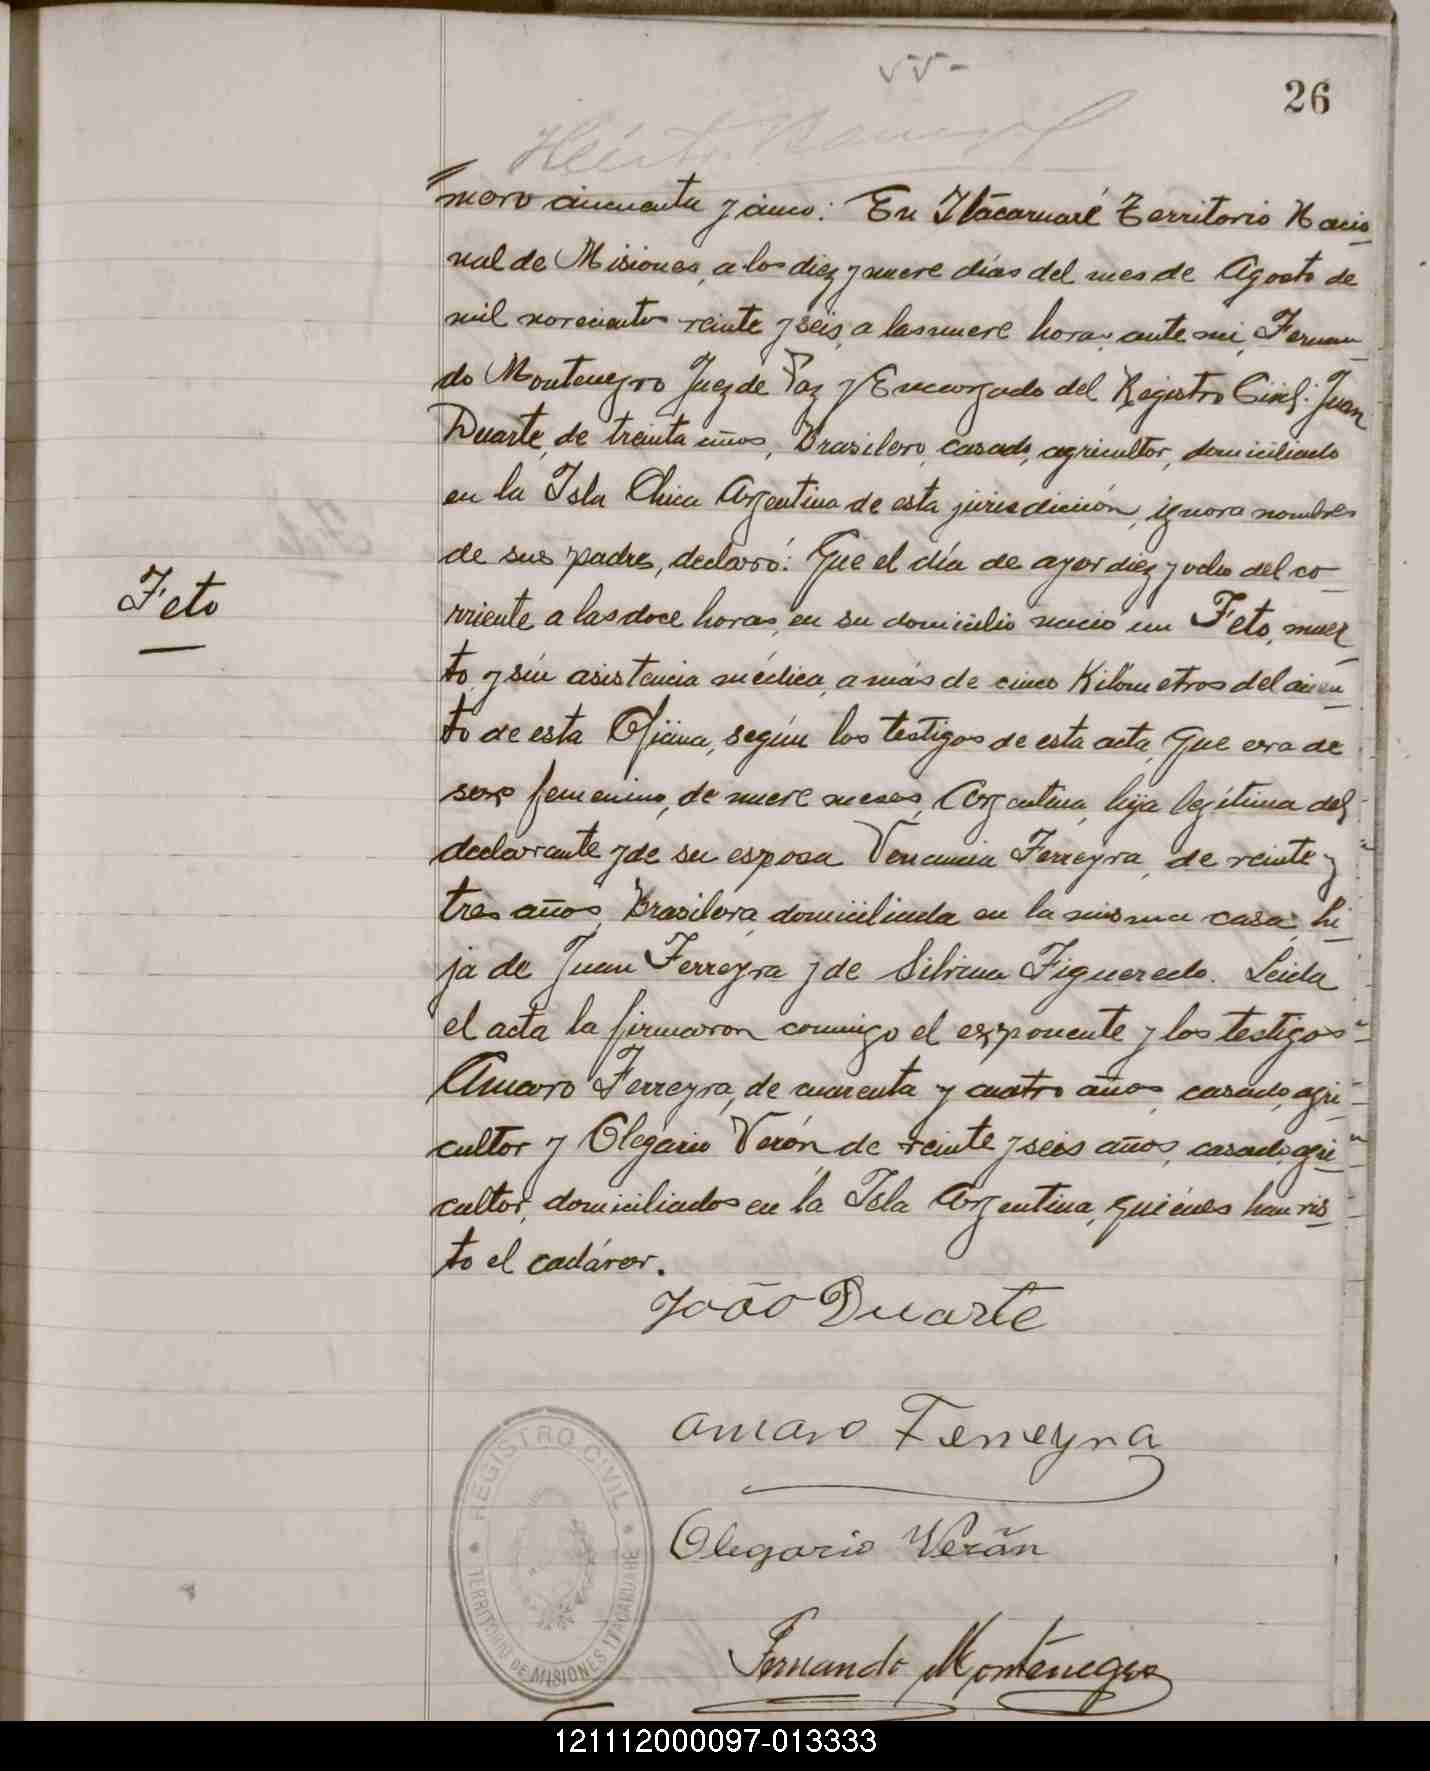 55-
26
mero cincuenta y cinco: En Itacaruaré Territorio Nacio
nal de Misiones, a los diez y nueve días del mes de Agosto de
mil novecientos veinte y seis, a las nueve horas, ante mi, Fernan
do Montenegro Juez de Paz y Encargado del Registro Civil: Juan
Duarte, de treinta años, Brasilero, casado, agricultor, domiciliado
en la Isla Chica Argentina de esta jurisdicción, ignora nombres
de sus padres, declaró: Que el día de ayer diez y ocho del co
Feto
rriente a las doce horas, en su domicilio nacio un Feto, muer
to, y sin asistencia médica, a más de cinco Kilometros del asien
to de esta Oficina, según los testigos de esta acta, que era de
sexo femenino, de nueve meses, Argentina, hija legítima del
declarante y de su esposa Venancia Ferreyra, de veinte y
tres años, Brasilera, domiciliada en la misma casa, hi
ja de Juan Ferreyra y de Silvina Figueredo. Leida
el acta la firmaron conmigo el exponente y los testigos
Amaro Ferreyra, de cuarenta y cuatro años, casado, agri
cultor y Olegario Verón de veinte y seis años, casado, agri
cultor, domiciliados en la Isla Argentina, quiénes han vis
to el cadáver.
João Duarte
amaro Ferreyra
Olegario Verãn
Fernando Montenegro
REGISTRO CIVIL
TERRITORIO DE MISIONES ITACARUARE
121112000097-013333